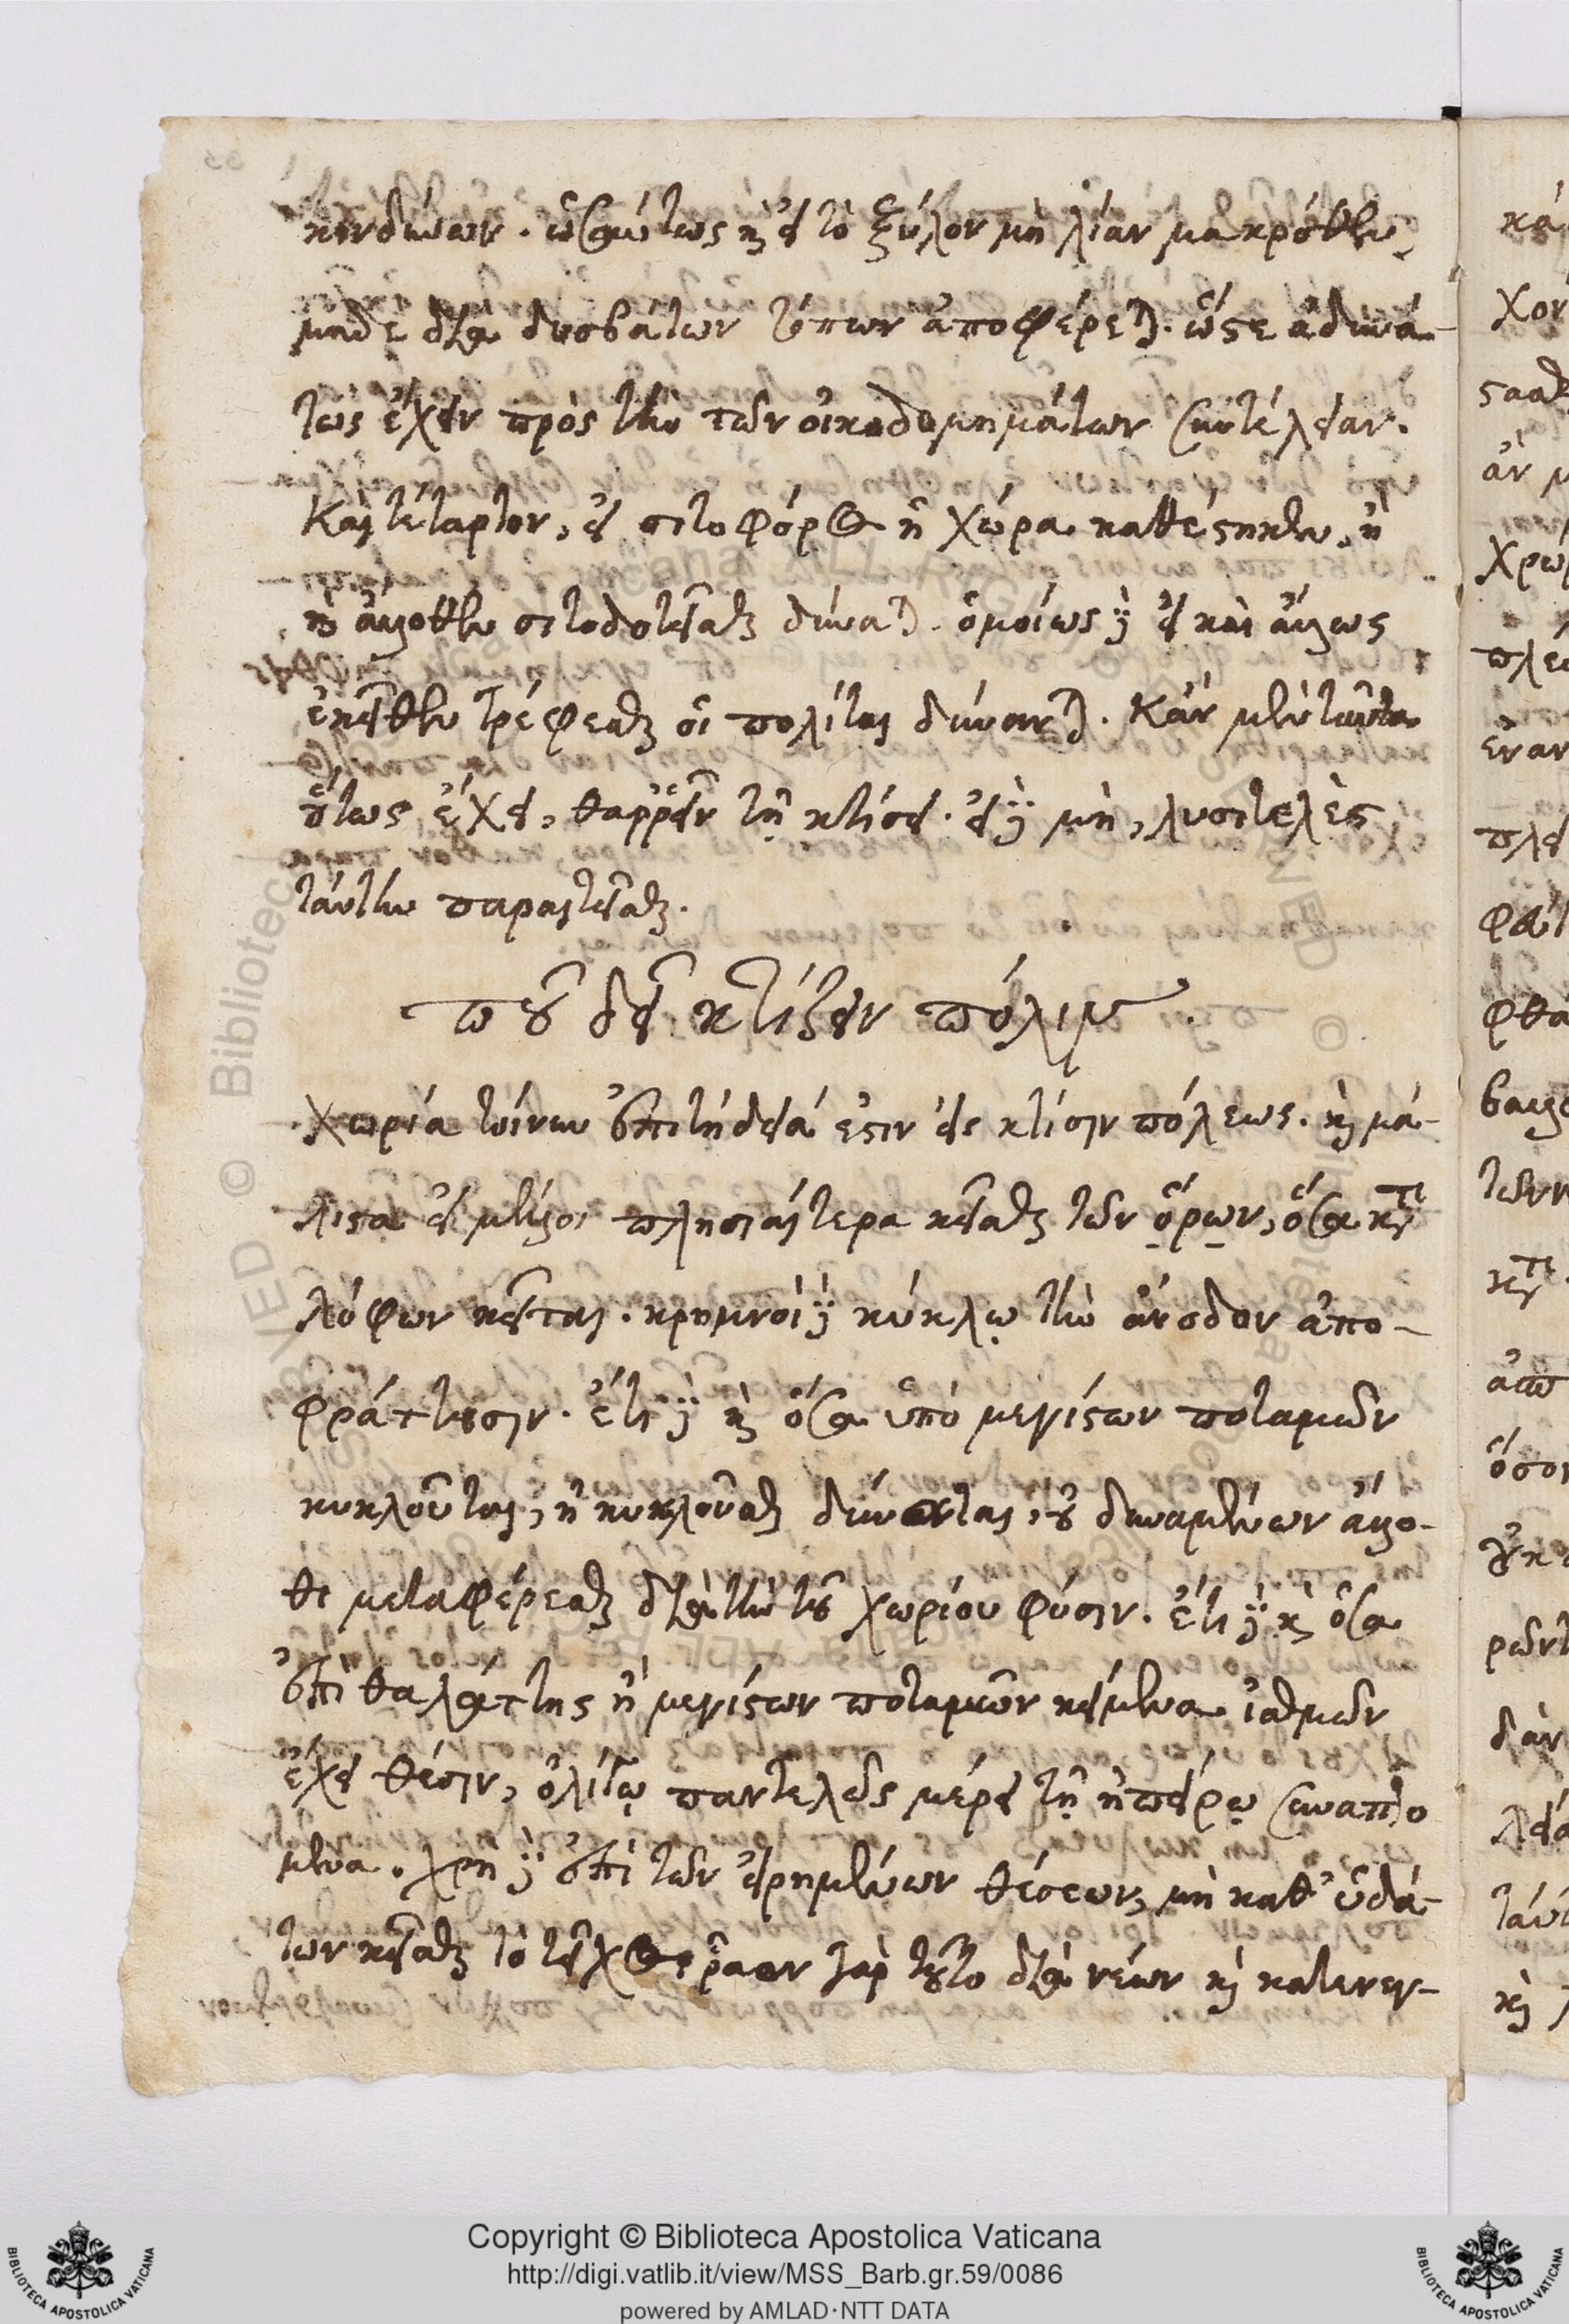 κινδύνων. ὡσαύτως καὶ εἰ τὸ ξύλον μὴ λίαν μακρόθεν,
μηδὲ διὰ δυσβάτων τόπων ἀποφέρεται. ὥστε ἀδυνά-
τως ἔχειν πρὸς τὴν τῶν οἰκοδομημάτων συντέλειαν.
Καὶ τέταρτον, εἰ σιτοφόρος ἡ χώρα καθέστηκεν, ἢ
καὶ ἄλλοθεν σιτοδοτεῖσθαι δύναται. ὁμοίως δὲ εἰ καὶ ἄλλως
ἐκεῖθεν τρέφεσθαι οἱ πολῖται δύνανται. Κἂν μὲν ταῦτα
οὕτως ἔχει, θαῤῥεῖν τῇ κτίσει. εἰ δὲ μὴ, λυσιτελὲς
ταύτην παραιτεῖσθαι.
ποῦ δεῖ κτίζειν πόλιν.
Χωρία τοίνυν ἐπιτήδειά ἐστιν εἰς κτίσιν πόλεως. καὶ μά-
λιστα εἰ μέλλοι πλησιαίτερα κεῖσθαι τῶν ὅρων, ὅσα κατὰ
λόφων κεῖται. κρημνοὶ δὲ κύκλῳ τὴν ἄνοδον ἀπο-
φράττουσιν. ἔτι δὲ καὶ ὅσα ὑπὸ μεγίστων ποταμῶν
κυκλοῦται, ἢ κυκλοῦσθαι δύνανται, οὐ δυναμένων ἄλλο-
θι μεταφέρεσθαι διὰ τὴν τοῦ χωρίου φύσιν. ἔτι δὲ καὶ ὅσα
ἐπὶ θαλάττης ἢ μεγίστων ποταμῶν κείμενα ἰσθμῶν
ἔχει θέσιν, ὀλίγῳ παντελῶς μέρει τῇ ἠπείρῳ συναπτό
μενα. χρὴ δὲ ἐπὶ τῶν εἰρημένων θέσεων, μὴ καθ' ὑδά-
των κεῖσθαι τὸ τεῖχος, ῥᾶον γὰρ τοῦτο διὰ νέων καὶ κατενεγ-
Copyright © Biblioteca Apostolica Vaticana
http://digi.vatlib.it/view/MSS_Barb.gr.59/0086
powered by AMLAD·NTT DATA